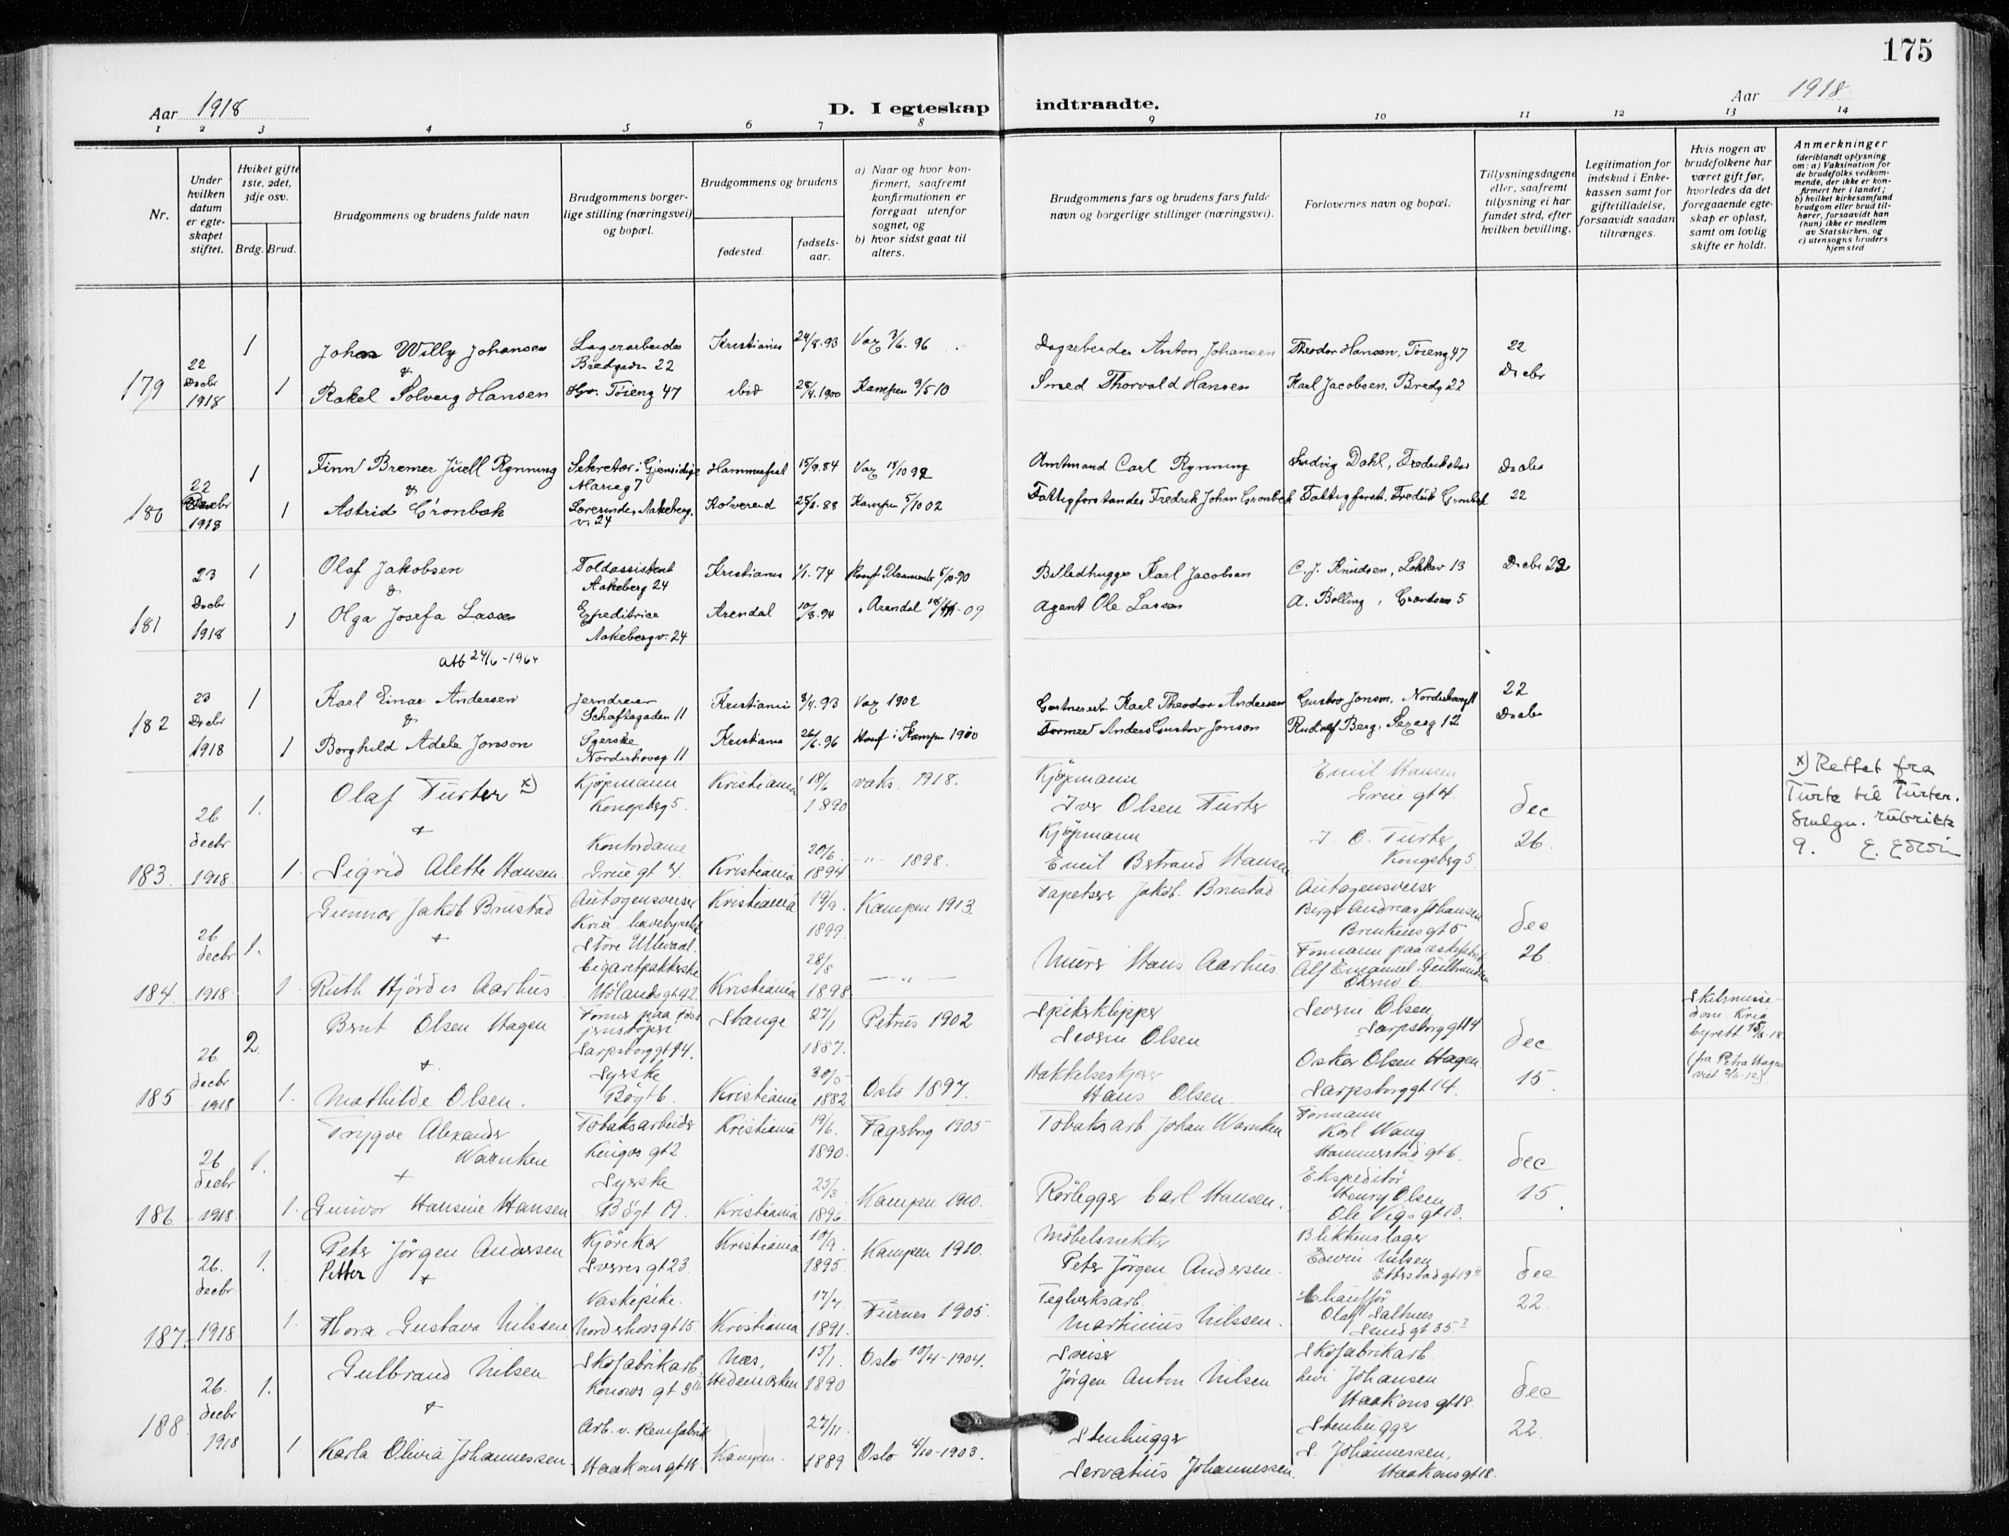 175
Aar 1918
D. I egteskap indtraadte.
Aar 1918
1 2 3 4 5 6 7 8 9 10 11 12 13 14
Nr.
Under hvilken datum er egteskapet stiftet.
Hvilket gifte 1ste, 2det, 3dje osv.
Brdg. Brud.
Brudgommens og brudens fulde navn
Brudgommens borgerlige stilling (næringsvei) og bopæl.
Brudgommens og brudens
fødested.
fødselsaar.
a) Naar og hvor konfirmert, saafremt konfirmationen er foregaat utenfor sognet, og
b) hvor sidst gaat til alters.
Brudgommens fars og brudens fars fulde navn og borgerlige stillinger (næringsvei).
Forlovernes navn og bopæl.
Tillysningsdagene eller, saafremt tillysning ei har fundet sted, efter hvilken bevilling.
Legitimation for indskud i Enkekassen samt for giftetilladelse, forsaavidt saadan tiltrænges.
Hvis nogen av brudefolkene har været gift før, hvorledes da det foregaaende egteskap er opløst, samt om lovlig skifte er holdt.
Anmerkninger
(deriblandt oplysning om: a) Vaksination for de brudefolks vedkommende, der ikke er konfirmert her i landet; b) hvilket kirkesamfund brudgom eller brud tilhører, forsaavidt han (hun) ikke er medlem av Statskirken, og c) utensogns bruders hjemsted
179 22 Decbr 1918
1 Johan Willy Johansen Lagerarbeider Bredgaden 22 Kristiania 24/8.93 Dagarbeider Anton Johansen Theodor Hansen, Tøieng 47 22 Decbr
&
1 Rakel Solveig Hansen Tøieng 47 ibid 1900 Kampen 9/5 10 Smed Thorvald Hansen Karl Jacobsen, Bredg 22
180 22 Decbr 1918
1 Finn Bremer Juell Rynning Sekretær i Gjensidige Marieg 7 Hammerfest 15/9.84 Amtmand Carl Rynning Ludvig Dahl, Fredrikstad Decbr 22
&
1 Astrid Grønbæk Lærerinde, Aakeberg.v. 24 Kolvereid 88 Kampen 5/10 02 Fattigforstander Fredrik Johan Grønbæk Fattigforst. Fredrik Grønbæk
181 23 Decbr 1918
1 Olaf Jakobsen Toldassistent Aakeberg 24 Kristiania 1/1.74 Billedhugger Karl Jacobsen C. J. Knudsen, Løkkev 13 Decbr 22
&
1 Olga Josefa Lassen Expeditrice Aakebergv. 24 Arendal 10/8.94 Arendal 09 Agent Ole Lassen A. Bolling,
182 23 Decbr 1918
24/6-1964
1 Karl Einar Andersen Jerndreier Schaftsgaden 11 Kristiania 93 1902 Gartnerarb. Karl Theodor Andersen Gustav Jonson, Norderhovsg 11 22 Decbr
&
1 Borghild Adele Jonson Syerske Norderhovsg 11 Kristiania 96 Konf i Kampen 1910 Former Anders Gustav Jonson Rudolf Berg,
183. 26 decbr 1918
1. Olaf Turter x) Kjøpmann Kongsbg 5. Kristiania 18/6 1890 vaks. 1918. Kjøpmann Iver Olsen Turter Emil Hansen Grue gt 4. dec 26.
+
1. Sigrid Alette Hansen. Kontordame Grue gt 4. Kristiania 20/6. 1894 — " — 1898. Kjøpmann Emil Bertrand Hansen I. O. Turter Kongsberg 5
x) Rettet fra
Turte til Turter.
Smlgn. rubrikk
9.
184 26 decbr 1918
1. Gunnar Jakob Brustad Autogensveiser Store Ullevaal. Kristiania 19/9. 1899. Kampen 1913. Tapetserer Jakob Brustad Autogensveiser Birger Andreas Johansen dec 26.
+
1. Ruth Hjørdis Aarhus. Cigaretpakkerske Hølands gt 42. Kristiania 28/8 1898 — " — Murer Hans Aarhus
185 26. decbr 1918
2. Bernt Olsen Hagen Sarpsborg gt 14. Stange 27/1 1887. Petrus 1902 Spikerklipper Severin Olsen Severin Olsen Sarpsborg gt 14 dec 15.
+
1. Mathilde Olsen. Syerske Bøgt 6. Kristiania 30/5 1882 Oslo 1897. Hans Olsen. Oskar Olsen Hagen Sarpsborg gt 14.
Skilsmisse-
dom. Kria
byrett
(fra Petra Hagen
186 26 decbr 1918.
1. Trygve Alexander Warnken Tobaksarbeider Kingos gt 2 Kristiania 19/6. 1890. Fagerborg 1905 Tobaksarb Johan Warnken Formann Karl Wang Hammerstad gt 6. dec 15.
+
1. Gunvor Hansine Hansen Syerske Bøgt 19. Kristiania 25/3 1896. Kampen 1910. Rørlegger Carl Hansen. Ekspeditør Henry Olsen Ole Vigs gt 10.
187. 26. decbr 1918
1. Peter Jørgen Andersen Petter Kjørekar Sverres gt 23. Kristiania 10/9. 1895. Kampen 1910. Møbelsnekker Peter Jørgen Andersen. Blikkenslager Edvin Nilsen Etterstad gt 19 dec 22.
+
1. Thora Gustava Nilssen Vaskepike. Norderhovs gt 15. Kristiania 17/7. 1891. Furnes 1905. Teglverksarb. Martinius Nilssen. Chauffør Olaf Saltnes
188. 26. decbr 1918
1. Gulbrand Nilsen Skofabrikarb. Konows gt Næs, Hedemarken 15/1. 1890 Oslo 10/4-1904. Sveiser Jørgen Anton Nilsen Skofabrikarb. Johansen Haakons gt 18. dec 22.
+
1 Karla Olivia Johannessen. Arb. v. Remfabrik Haakons gt 18. Kampen. 27/11. 1889 Oslo 4/10-1903. Stenhugger Servatius Johannessen. Stenhugger S Johannessen, Haakons gt 18.